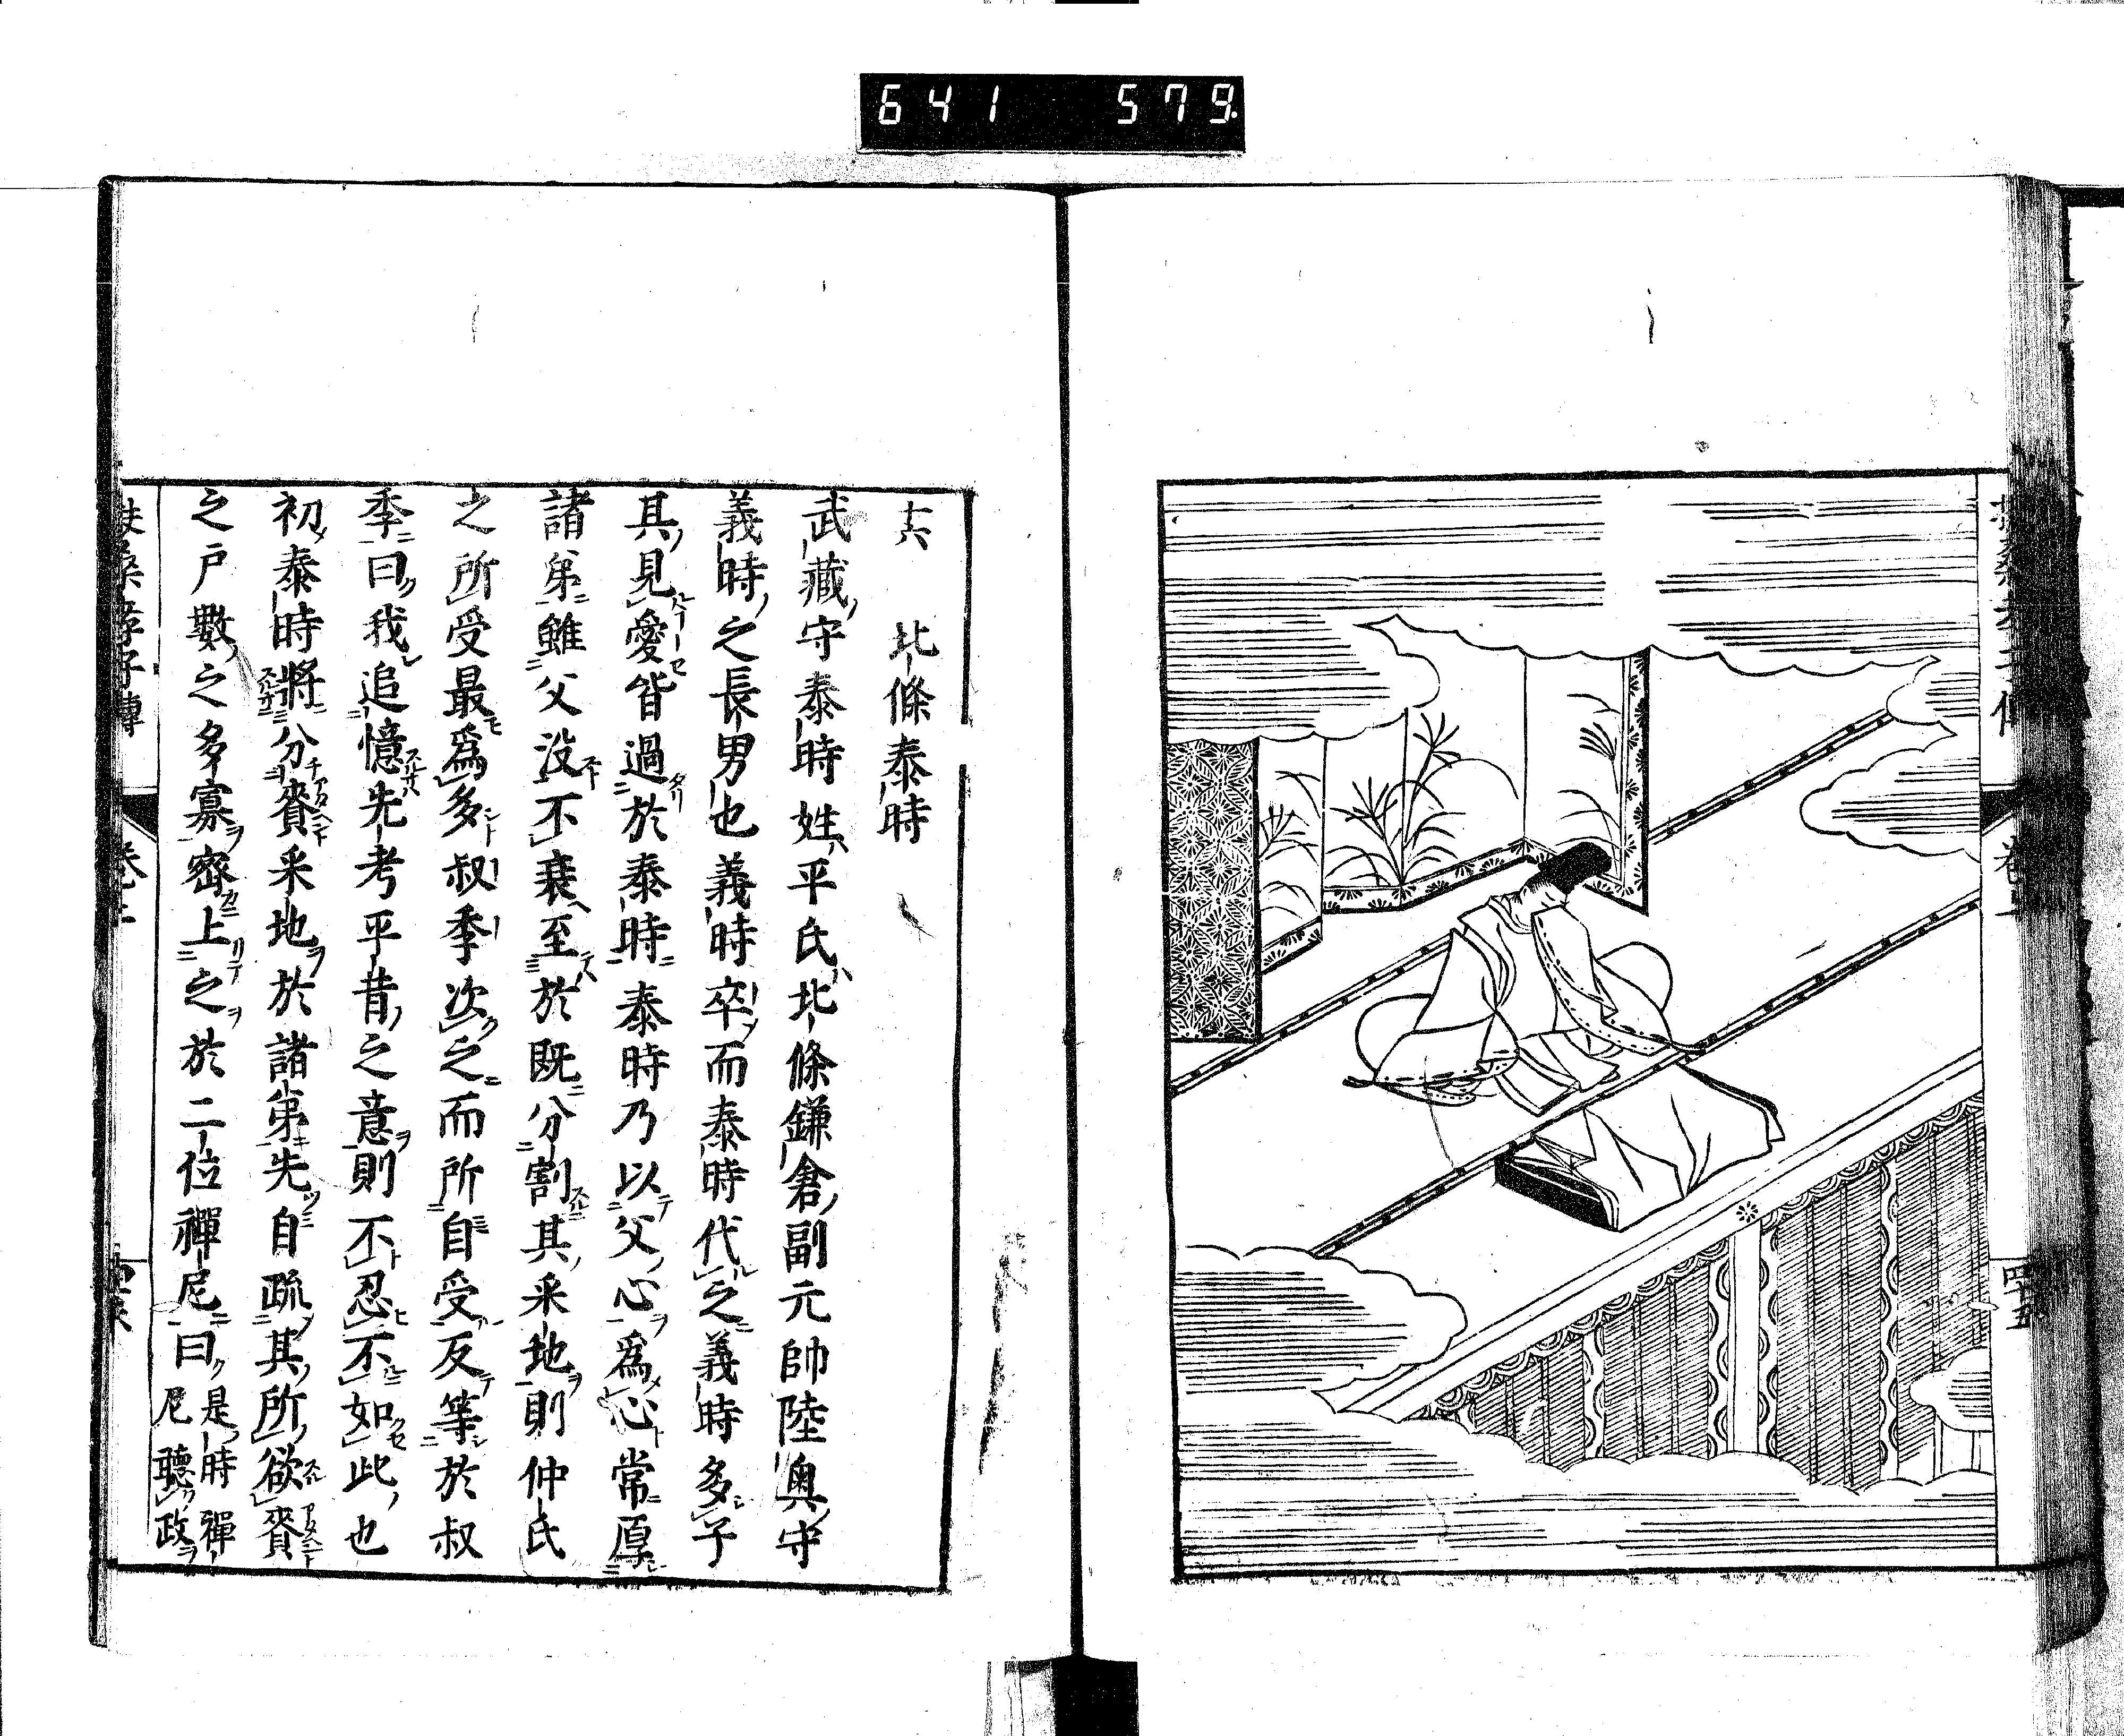 641 579
四十五
十六 北條泰時
武藏守泰時姓平氏北條鎌倉副元帥陸奧守
義時之長男也義時卒而泰時代之義時多子
其見愛皆過於泰時泰時乃以父心爲心常厚
諸弟雖父没不衰至於既分割其采地則仲氏
之所受最爲多叔季次之而所自受反等於叔
季曰我追憶先考平昔之意則不忍不如此也
初泰時將分賚采地於諸弟先自疏其所欲賚
之戸數之多寡密上之於二位禪尼曰是時禪
尼聽政
扶桑孝子傳